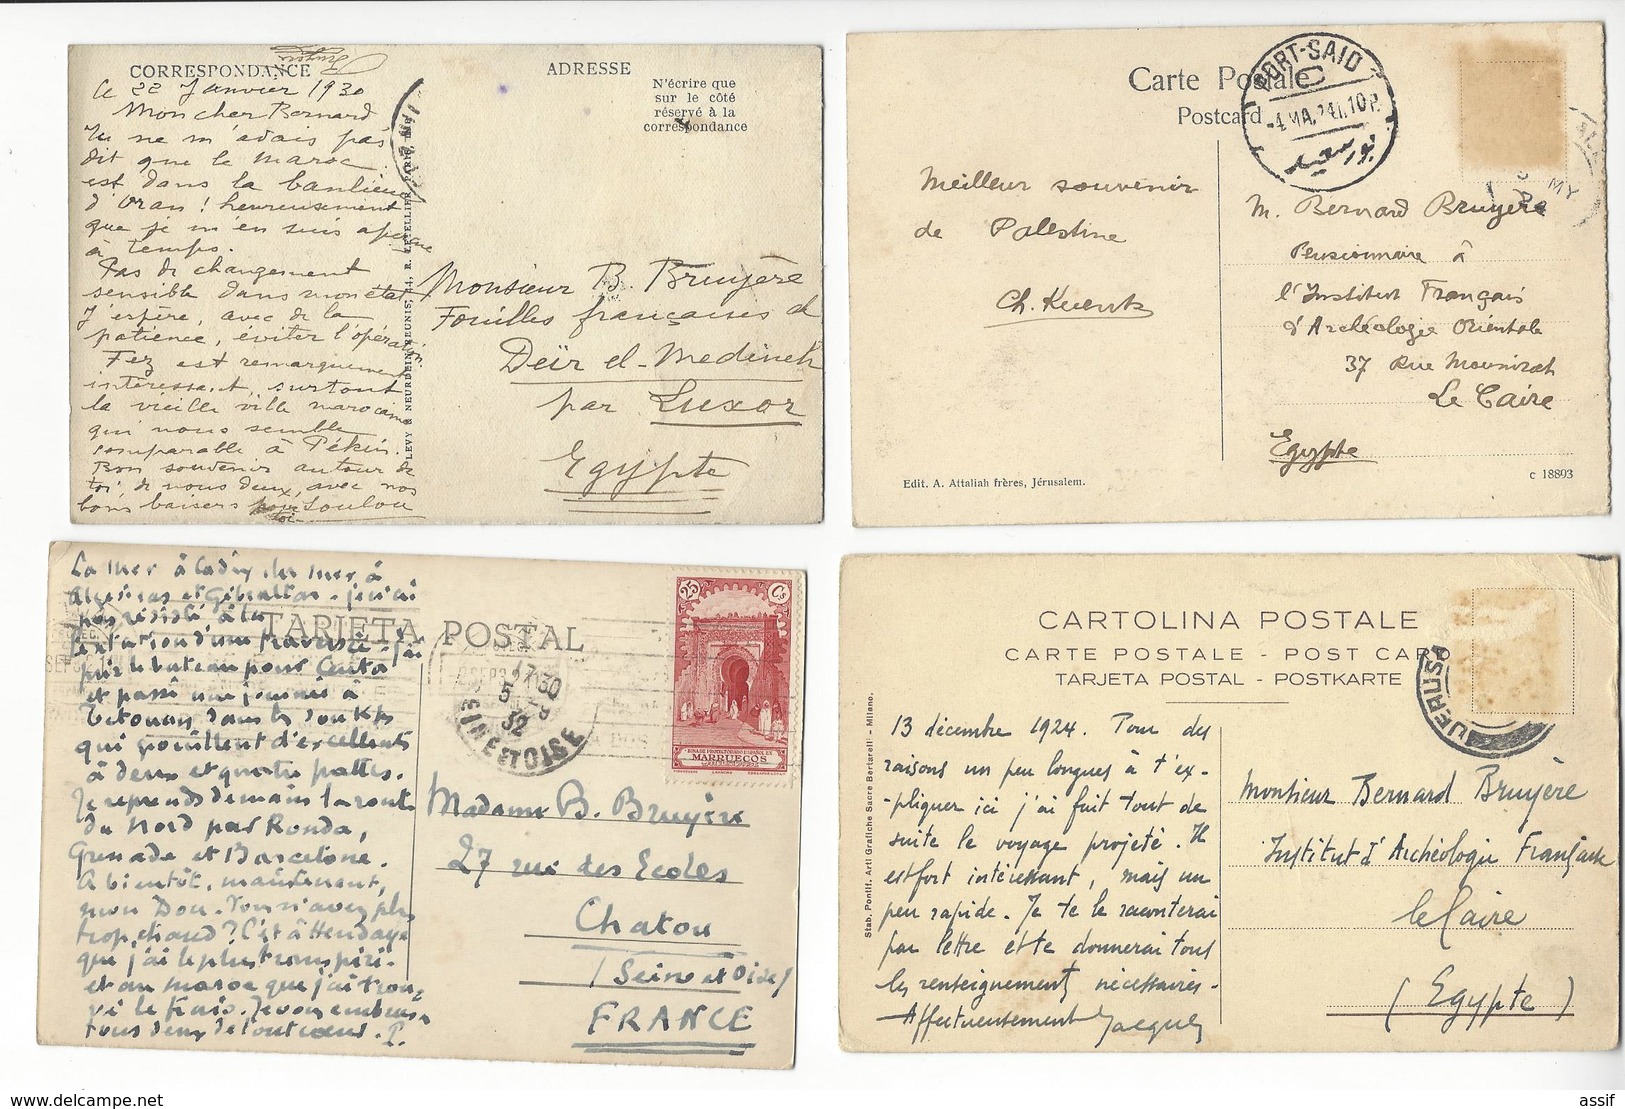 CORRESPONDANCE
ADRESSE
N'écrire que
sur le côté
réservé à la
correspondance
Ce 22 Janvier 1930
Mon cher Bernard
Tu ne m'avais pas
dit que le Maroc
est dans la banlieue
d'Oran ! heureusement
que je m'en suis aperçue
à temps.
Pas de changement
sensible dans mon état
J'espère, avec de la
patience, éviter l'opération.
Fez est remarquement
intéressant, surtout
la vieille ville marocaine
qui nous semble
comparable à Pékin.
Bon souvenir autour de
toi, de nous deux, avec nos
bons baisers pour Loulou
toi
LEVY & NEURDEIN REUNIS, 44, R. LETELLIER, PARIS
Monsieur B. Bruyère
Fouilles françaises de
Deïr el-Medineh
par Luxor
Egypte
Carte Postale
Postcard
PORT-SAID
-4.MA.24 1.10P.
بورسعيد
Meilleur souvenir
de Palestine
Ch. Kuentz
M. Bernard Bruyère
Pensionnaire à
l'Institut Français
d'Archéologie Orientale
37 Rue Mounirah
Le Caire
Egypte
Edit. A. Attallah frères, Jérusalem.
c 18893
TARJETA POSTAL
La mer à Cadix, la mer à
Algesiras et Gibraltar - je n'ai
pas résisté à la
tentation d'une traversée - j'ai
pris le bateau pour Ceuta
et passé une journée à
Tetouan dans les soukks
qui grouillent d'excellents
à deux et quatre pattes.
Je reprends demain la route
du Nord par Ronda,
Grenade et Barcelone.
A bientôt, maintenant,
mon Dou. Vous n'avez plus
trop chaud ? C'est à Hendaye
que j'ai le plus transpiré
et au Maroc que j'ai trou-
vé le frais. Je vous embrasse
tous deux de tout cœur. P.
25 Cs
ZONA DE PROTECTORADO ESPAÑOL EN
MARRUECOS
17 30
5-9
32
SEINE ET OISE
Madame B. Bruyère
27 rue des Ecoles
Chatou
(Seine et Oise)
FRANCE
CARTOLINA POSTALE
CARTE POSTALE - POST CARD
TARJETA POSTAL - POSTKARTE
JERUSA
Stab. Pontif. Arti Grafiche Sacre Bertarelli - Milano.
13 décembre 1924. Pour des
raisons un peu longues à t'ex-
-pliquer ici j'ai fait tout de
suite le voyage projeté. Il
est fort intéressant, mais un
peu rapide. Je te le raconterai
par lettre et te donnerai tous
les renseignements nécessaires.
Affectueusement Jacques
Monsieur Bernard Bruyère
Institut d'Archéologie Française
le Caire
(Egypte)
Delcampe.net
assif